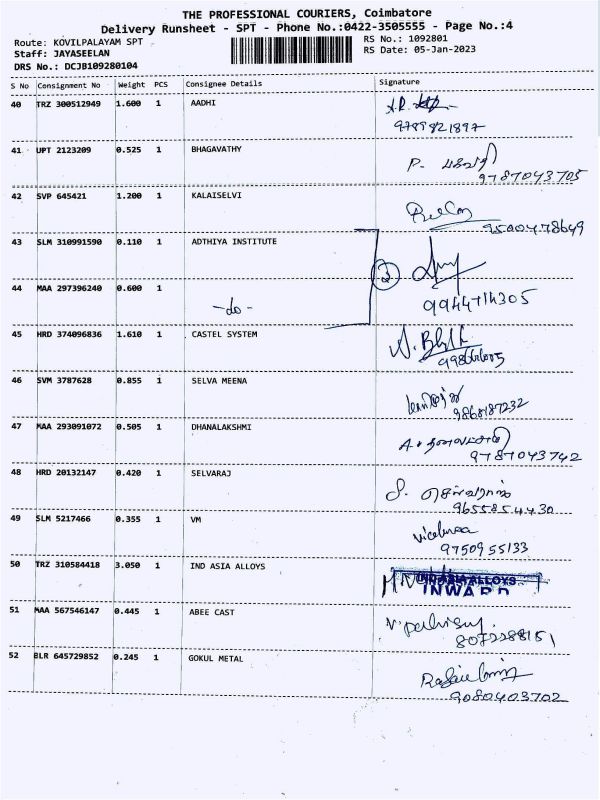 THE PROFESSIONAL COURIERS, Coimbatore
Delivery Runsheet - SPT - Phone No.:0422-3505555 - Page No.:4
Route: KOVILPALAYAM SPT
Staff: JAYASEELAN
DRS No.: DCJB109280104
RS No.: 1092801
RS Date: 05-Jan-2023
S No Consignment No Weight PCS Consignee Details Signature
40 TRZ 300512949 1.600 1 AADHI
9789821897
41 UPT 2123209 0.525 1 BHAGAVATHY
P.
9787043705
42 SVP 645421 1.200 1 KALAISELVI
9500478649
43 SLM 310991590 0.110 1 ADTHIYA INSTITUTE
2
44 MAA 297396240 0.600 1 -do-
9944714305
45 HRD 374096836 1.610 1 CASTEL SYSTEM
46 SVM 3787628 0.855 1 SELVA MEENA
9868187232
47 MAA 293091072 0.505 1 DHANALAKSHMI
9787043742
48 HRD 20132147 0.420 1 SELVARAJ
செல்வராஜ்
9655854430
49 SLM 5217466 0.355 1 VM
9750955133
50 TRZ 310584418 3.050 1 IND ASIA ALLOYS
IND ASIA ALLOYS
INWARD
51 MAA 567546147 0.445 1 ABEE CAST
8072288151
52 BLR 645729852 0.245 1 GOKUL METAL
9080403702